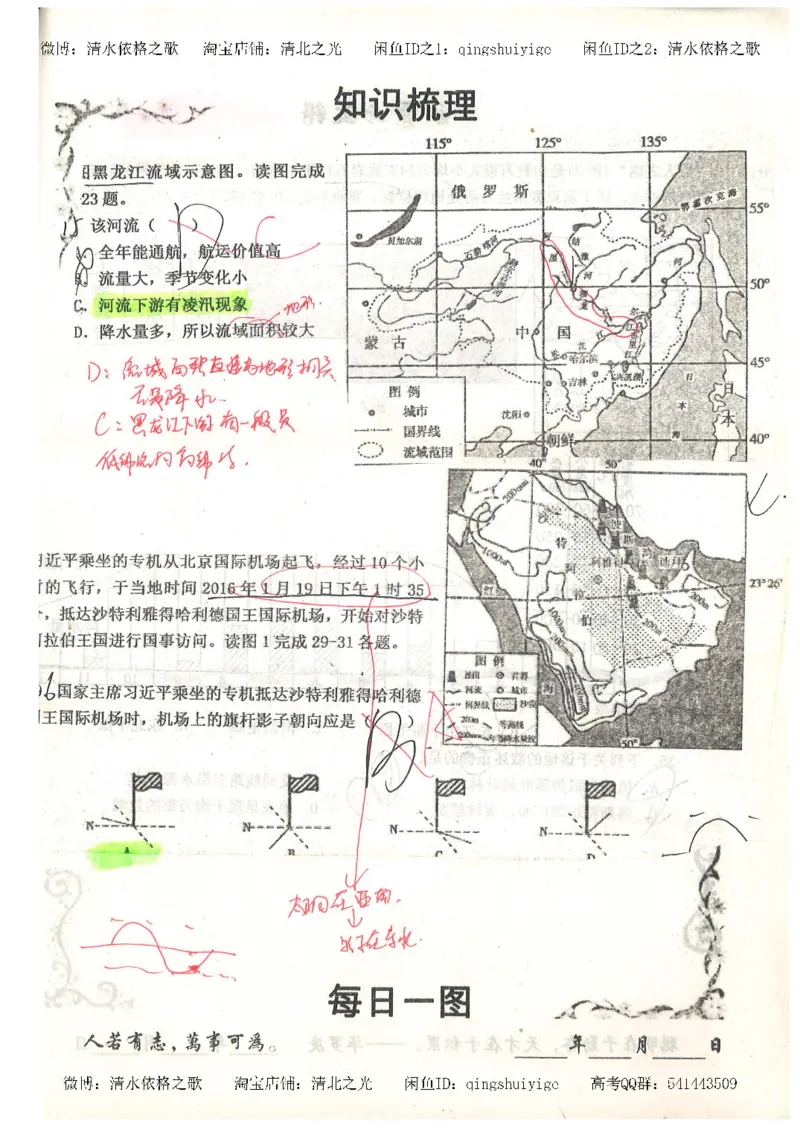 微博：清水依格之歌 淘宝店铺：清北之光 闲鱼ID之1：qingshuiyige 闲鱼ID之2：清水依格之歌
知识梳理
黑龙江流域示意图。读图完成
23题。
该河流（ ）
全年能通航，航运价值高
B. 流量大，季节变化小
C. 河流下游有凌汛现象
地形
D. 降水量多，所以流域面积较大
D：流域面积直接和地形相关
不是降水.
C：黑龙江下游有一段是
低纬流向高纬.
115° 125° 135°
俄罗斯
鄂霍次克海
55°
贝加尔湖
石勒喀河
结雅河
黑龙江
50°
蒙古
中国
哈尔滨
兴凯湖
45°
吉林
日本海
日本
图例
城市
国界线
流域范围
沈阳
朝鲜
40°
40° 50°
200mm
沙特阿拉伯
波斯湾
利雅得
迪拜
23°26′
红海
图例
油田 首都
河流 城市
国界线 沙漠
200m 等高线
200mm 年等降水量线
50°
习近平乘坐的专机从北京国际机场起飞，经过10个小
时的飞行，于当地时间2016年1月19日下午1时35
，抵达沙特利雅得哈利德国王国际机场，开始对沙特
阿拉伯王国进行国事访问。读图1完成29-31各题。
国家主席习近平乘坐的专机抵达沙特利雅得哈利德
国王国际机场时，机场上的旗杆影子朝向应是（B）
N N N N
A B C D
太阳在西南.
影子在东北.
每日一图
人若有志，萬事可為。
年 月 日
微博：清水依格之歌 淘宝店铺：清北之光 闲鱼ID：qingshuiyige 高考QQ群：541443509